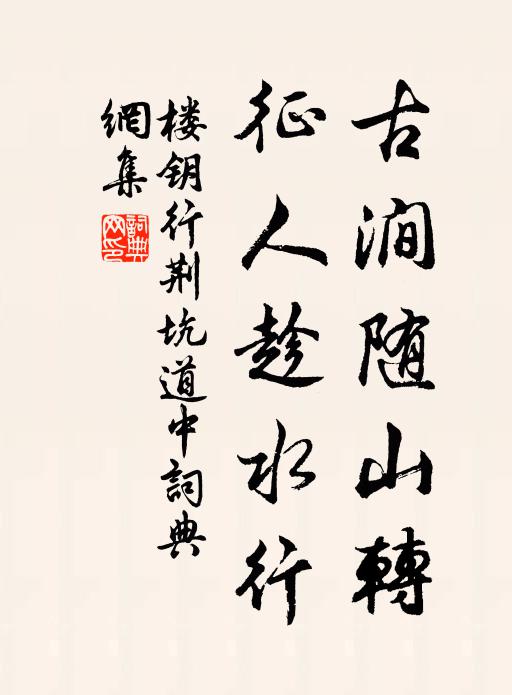 古涧随山轉
征人趁水行
楼钥行荆坑道中詞典
網集
詞典網印